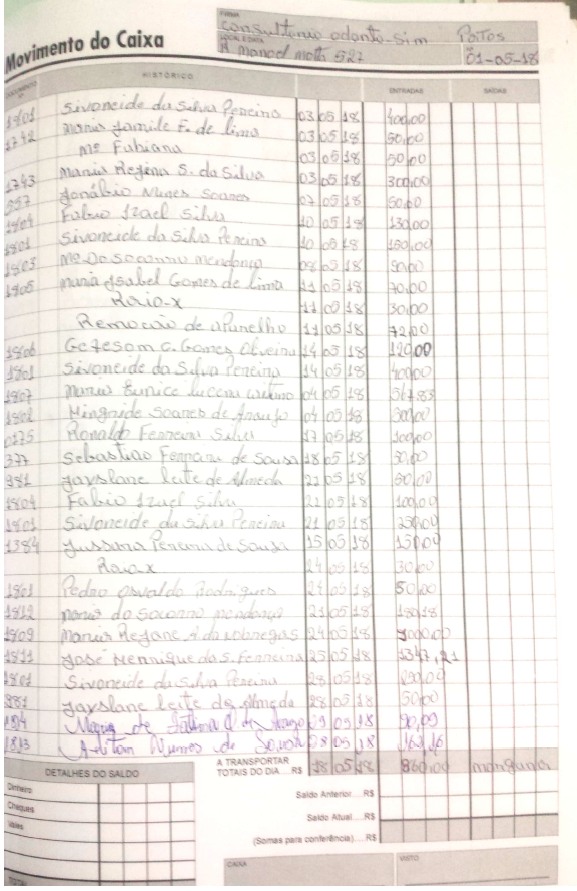 Movimento do Caixa
FIRMA
Consultorio odonto-sim Patos
LOCAL E DATA
R manoel mott 527 01-05-18
DOCUMENTO Nº HISTÓRICO ENTRADAS SAÍDAS
1801 Sivoneide da Silva Pereira 03 05 18 400,00
1742 Maria Jamile F. de lima 03 05 18 50,00
Mª Fabiana 03 05 18 50,00
1743 Maria Regina S. da Silva 03 05 18 300,00
597 Jonábio Nunes Soares 07 05 18 50,00
1804 Fabio Izael Silva 10 05 18 130,00
1801 Sivoneide da Silva Pereira 10 05 18 150,00
1803 Mª Do Socorro mendonça 08 05 18 50,00
1805 maria Isabel Gomes de lima 11 05 18 70,00
Raio-x 11 05 18 30,00
Remoção de aparelho 11 05 18 72,00
1806 G. Gomes Oliveira 14 05 18 120,00
1801 Sivoneide da Silva Pereira 14 05 18 400,00
1807 Maria Eunice lucena 04 05 18 567,83
1802 Soares de Araujo 04 05 18 300,00
0175 Ronaldo Ferreira Silva 17 05 18 100,00
377 Sebastiao Ferreira de Sousa 18 05 18 50,00
981 Jayslane leite de Almeda 21 05 18 50,00
1804 Fabio Izael Silva 21 05 18 100,00
1801 Sivoneide da Silva Pereira 21 05 18 250,00
1384 Jussara Pereira de Sousa 15 05 18 150,00
Raio x 24 05 18 30,00
1801 Pedro Osvaldo Rodrigues 24 05 18 50,00
1812 maria do socorro mendonça 21 05 18 180,18
1809 Maria Rejane A da nobregas 24 05 18
1811 José Henrique da S. Ferreira 25 05 18 1347,21
1801 Sivoneide da Silva Pereira 28 05 18
981 Jayslane leite de Almeda 28 05 18 50,00
1814 de Fatima 29 05 18 90,00
1813 Nunes de Sousa 28 05 18
A TRANSPORTAR
TOTAIS DO DIA R$ 18 05 18 860,00
DETALHES DO SALDO
Dinheiro
Cheques
Vales
TOTAL
Saldo Anterior R$
Saldo Atual R$
(Somas para conferência) R$
CAIXA VISTO